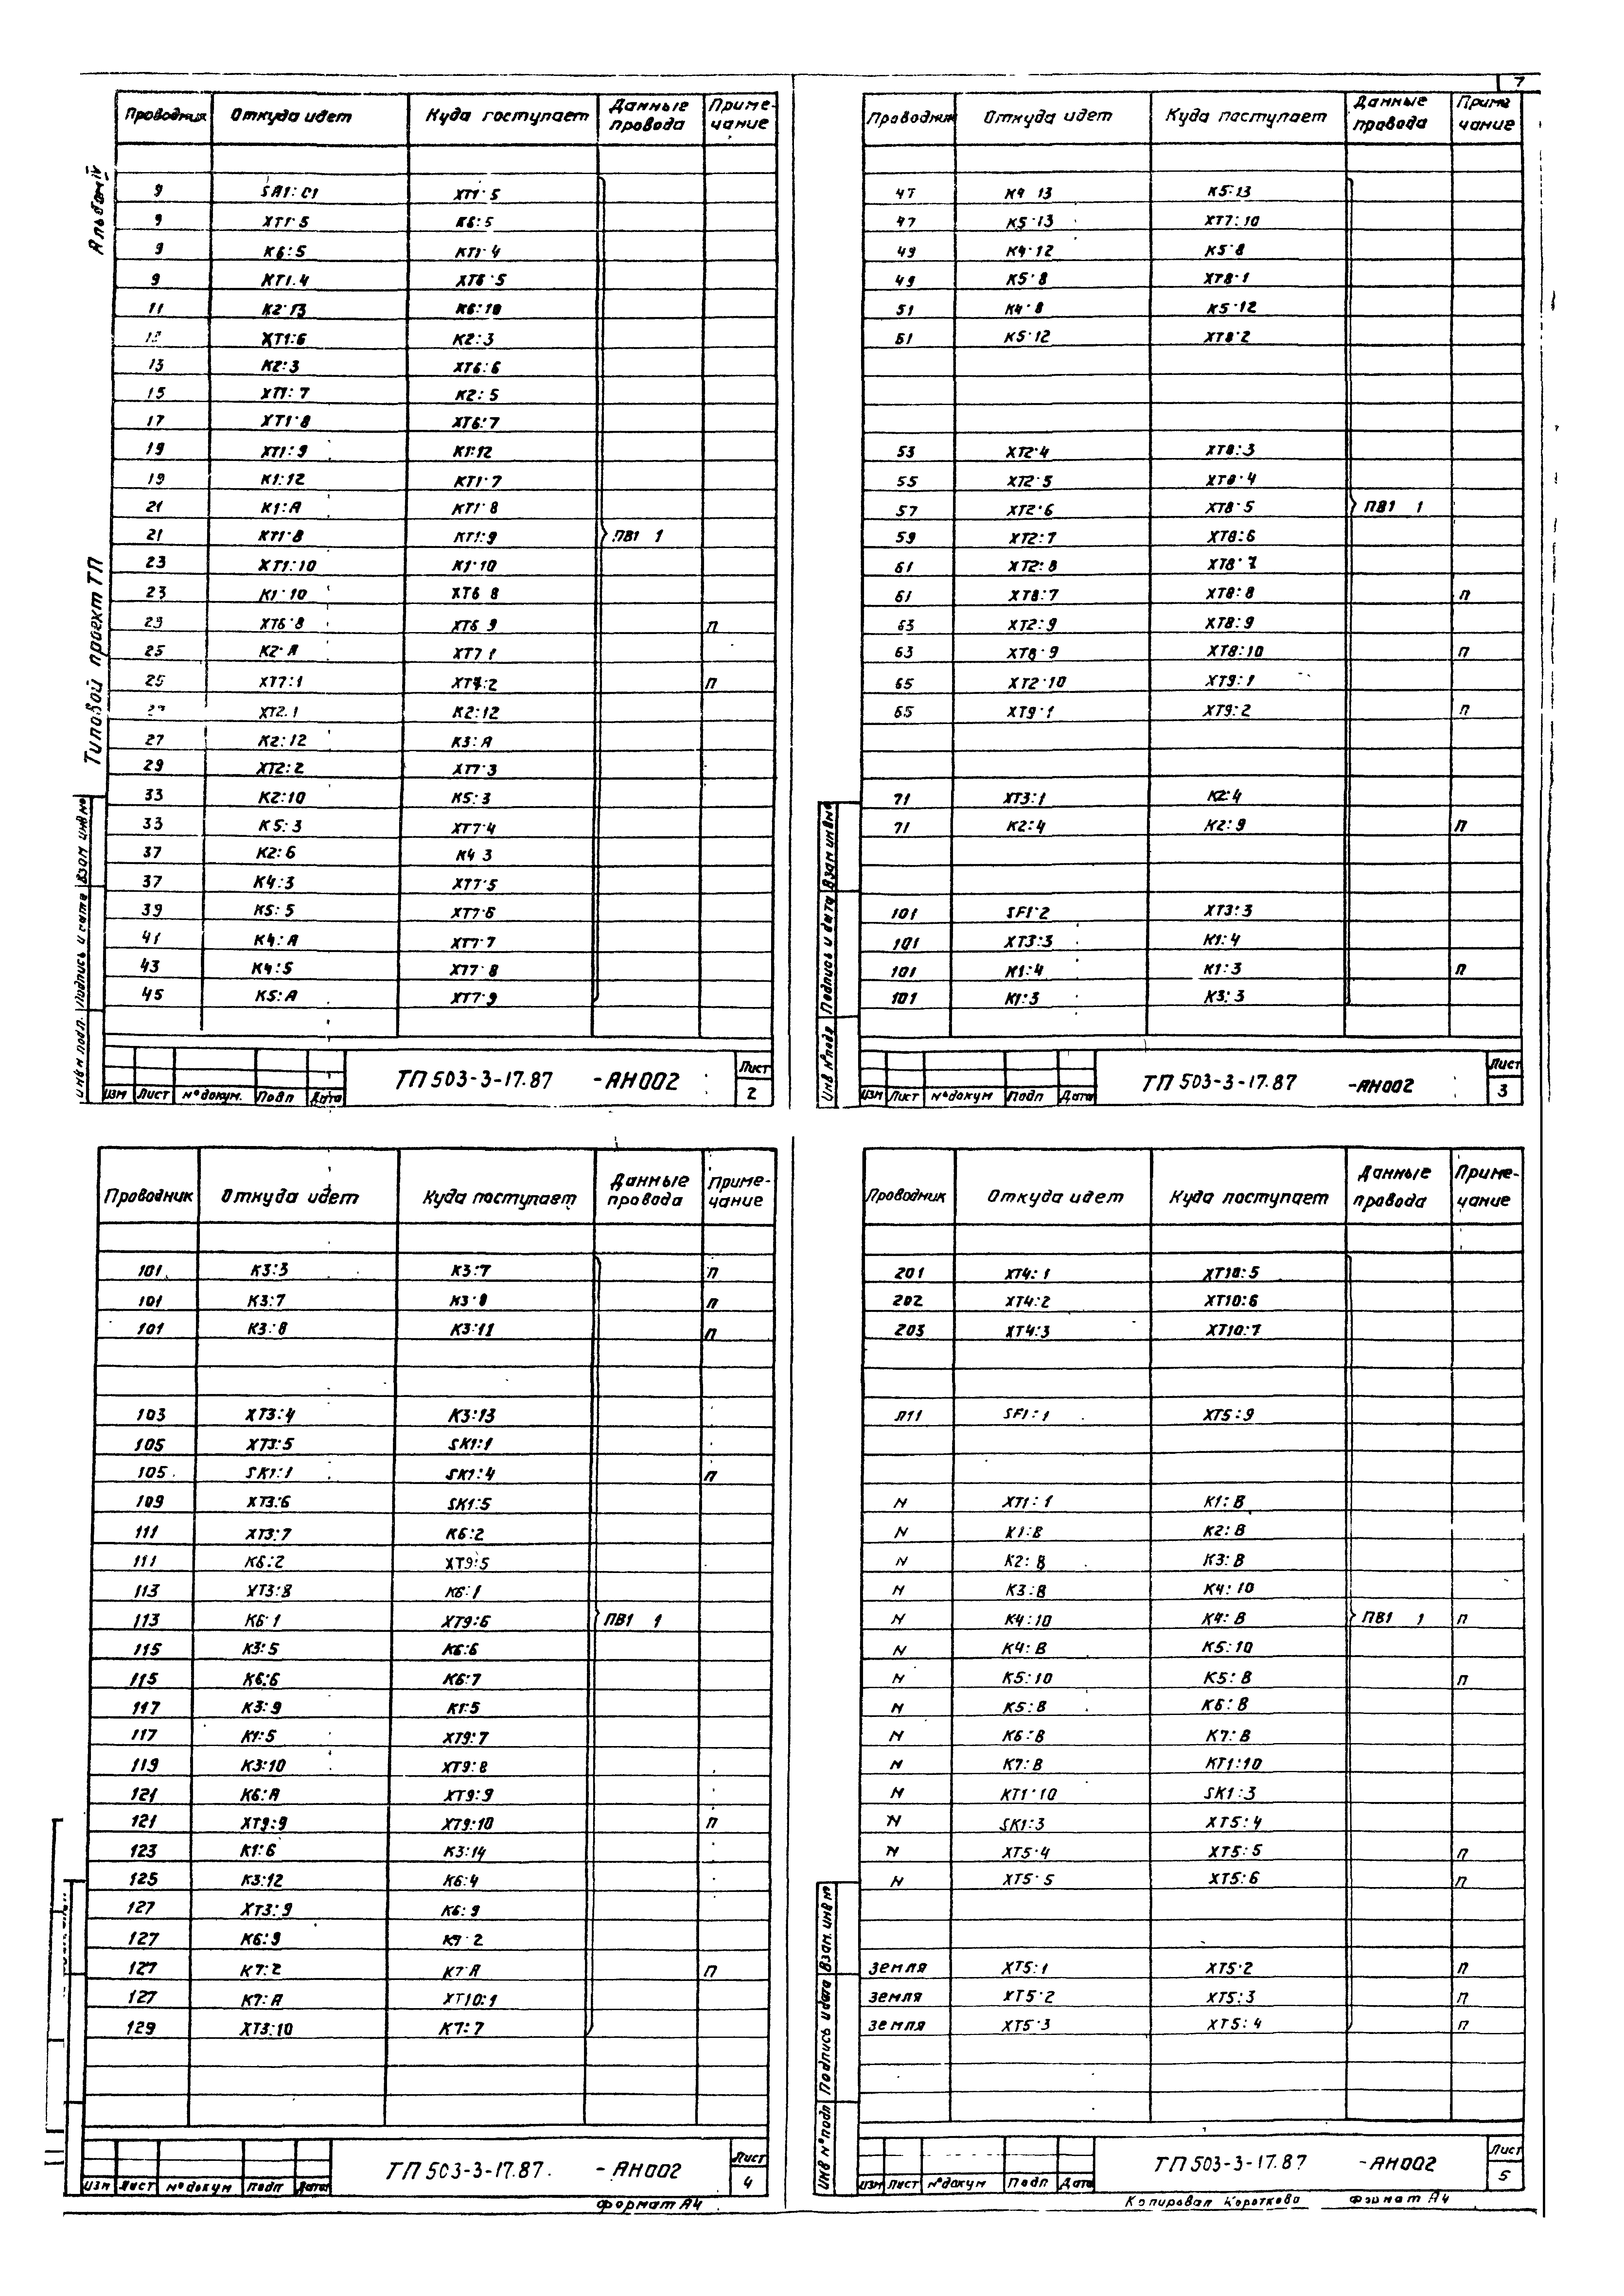 7
Альбом IV
Типовой проект ТП
Проводник Откуда идет Куда поступает Данные провода Приме-чание
9 SA1:C1 XT1:5
9 XT1:5 K6:5
9 K6:5 KT1:4
9 KT1.4 XT6:5
11 K2:13 K6:10
XT1:6 K2:3
13 K2:3 XT6:6
15 XT1:7 K2:5
17 XT1:8 XT6:7
19 XT1:9 K1:12
19 K1:12 KT1:7
21 K1:A KT1:8
21 KT1:8 KT1:9 ПВ1 1
23 XT1:10 K1:10
23 K1:10 XT6 8
23 XT6:8 XT6 9 П
25 K2:A XT7 1
25 XT7:1 XT7:2 П
XT2.1 K2:12
27 K2:12 K3:A
29 XT2:2 XT7:3
33 K2:10 K5:3
33 K5:3 XT7:4
37 K2:6 K4 3
37 K4:3 XT7:5
39 K5:5 XT7:6
41 K4:A XT7:7
43 K4:5 XT7:8
45 K5:A XT7:9
Инв № подл. Подпись и дата Взам инв №
Изм Лист № докум. Подп Дата
ТП 503-3-17.87 -АН002
Лист
2
Проводник Откуда идет Куда поступает Данные провода Приме чание
47 K4 13 K5:13
47 K5:13 XT7:10
49 K4:12 K5:8
49 K5:8 XT8:1
51 K4:8 K5:12
51 K5:12 XT8:2
53 XT2:4 XT8:3
55 XT2:5 XT8:4
57 XT2:6 XT8:5 ПВ1 1
59 XT2:7 XT8:6
61 XT2:8 XT8:7
61 XT8:7 XT8:8 П
63 XT2:9 XT8:9
63 XT8:9 XT8:10 П
65 XT2:10 XT9:1
65 XT9:1 XT9:2 П
71 XT3:1 K2:4
71 K2:4 K2:9 П
101 SF1:2 XT3:3
101 XT3:3 K1:4
101 K1:4 K1:3 П
101 K1:3 K3:3
Инв № подл Подпись и дата Взам инв №
Изм Лист № докум Подп Дата
ТП 503-3-17.87 -АН002
Лист
3
Проводник Откуда идет Куда поступает Данные провода Приме-чание
101 K3:3 K3:7 П
101 K3:7 K3:8 П
101 K3:8 K3:11 П
103 XT3:4 K3:13
105 XT3:5 SK1:1
105 SK1:1 SK1:4 П
109 XT3:6 SK1:5
111 XT3:7 K6:2
111 K6:2 XT9:5
113 XT3:8 K6:1
113 K6:1 XT9:6 ПВ1 1
115 K3:5 K6:6
115 K6:6 K6:7
117 K3:9 K1:5
117 K1:5 XT9:7
119 K3:10 XT9:8
121 K6:A XT9:9
121 XT9:9 XT9:10 П
123 K1:6 K3:14
125 K3:12 K6:4
127 XT3:9 K6:9
127 K6:9 K7:2
127 K7:2 K7:A П
127 K7:A XT10:1
129 XT3:10 K7:7
Изм Лист № докум Подп Дата
ТП 503-3-17.87. -АН002
Лист
4
Формат А4
Проводник Откуда идет Куда поступает Данные провода Приме-чание
201 XT4:1 XT10:5
202 XT4:2 XT10:6
203 XT4:3 XT10:7
Л11 SF1:1 XT5:9
N XT1:1 K1:B
N K1:B K2:B
N K2:B K3:B
N K3:B K4:10
N K4:10 K4:B ПВ1 1 П
N K4:B K5:10
N K5:10 K5:B П
N K5:B K6:B
N K6:B K7:B
N K7:B KT1:10
N KT1:10 SK1:3
N SK1:3 XT5:4
N XT5:4 XT5:5 П
N XT5:5 XT5:6 П
Земля XT5:1 XT5:2 П
Земля XT5:2 XT5:3 П
Земля XT5:3 XT5:4 П
Инв № подл Подпись и дата Взам. инв №
Изм Лист № докум Подп Дата
ТП 503-3-17.87 -АН002
Лист
5
Копировал Короткова Формат А4